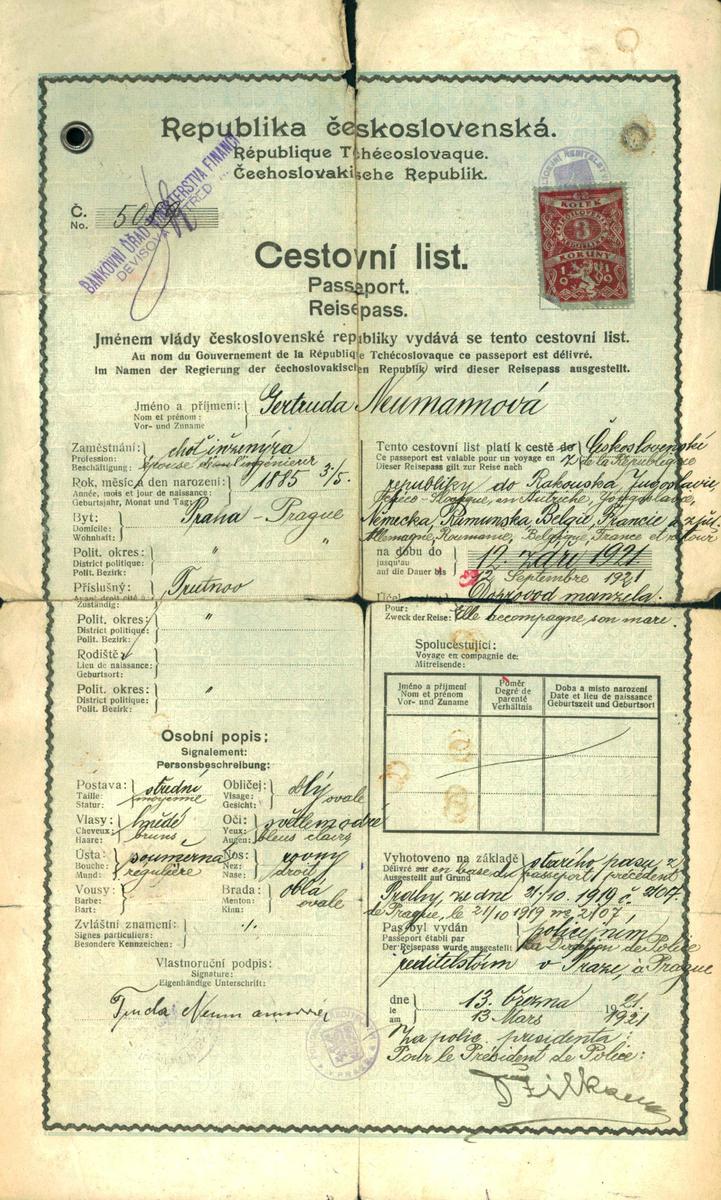 Republika československá.
République Tchécoslovaque.
Čechoslovakische Republik.
BANKOVNÍ ÚŘAD MINISTERSTVA FINANCÍ
Č.
No.
KOLEK
3
KORUNY
1919
Cestovní list.
Passeport.
Reisepass.
Jménem vlády československé republiky vydává se tento cestovní list.
Au nom du Gouvernement de la République Tchécoslovaque ce passeport est délivré.
Im Namen der Regierung der čechoslovakischen Republik wird dieser Reisepass ausgestellt.
Jméno a příjmení: Gertruda Neumannová
Nom et prénom:
Vor- und Zuname
Zaměstnání: choť inženýra
Profession: épouse d'un ingénieur
Beschäftigung:
Rok, měsíc a den narození: 1885 3/5.
Année, mois et jour de naissance:
Geburtsjahr, Monat und Tag:
Byt: Praha - Prague
Domicile:
Wohnhaft:
Polit. okres: "
District politique:
Polit. Bezirk:
Příslušný: Trutnov
Zuständig:
Polit. okres: "
District politique:
Polit. Bezirk:
Rodiště:
Lieu de naissance:
Geburtsort:
Polit. okres: "
District politique:
Polit. Bezirk:
Osobní popis:
Signalement:
Personsbeschreibung:
Postava: střední Obličej: dlý
Taille: moyenne Visage: ovale
Statur: Gesicht:
Vlasy: hnědé Oči: světlemodré
Cheveux: bruns Yeux: bleus clairs
Haare: Augen:
Ústa: souměrná Nos: rovný
Bouche: régulière Nez: droit
Mund: Nase:
Vousy: Brada: oblá
Barbe: Menton: ovale
Bart: Kinn:
Zvláštní znamení: ./.
Signes particuliers:
Besondere Kennzeichen:
Vlastnoruční podpis:
Signature:
Eigenhändige Unterschrift:
Truda Neumannová
Tento cestovní list platí k cestě do z Československé
Ce passeport est valable pour un voyage en de la République
Dieser Reisepass gilt zur Reise nach
republiky do Rakouska, Jugoslavie,
Tchéco-Slovaque, en Autriche, Yougoslavie,
Německa, Rumunska, Belgie, Francie a zpět
Allemagne, Roumanie, Belgique, France et retour
na dobu do 12. září 1921
jusqu'au
auf die Dauer bis 12 Septembre 1921
Účel Doprovod manžela.
Pour: Elle accompagne son mari.
Zweck der Reise:
Spolucestující:
Voyage en compagnie de:
Mitreisende:
Jméno a příjmení Poměr Doba a místo narození
Nom et prénom Degré de parenté Date et lieu de naissance
Vor- und Zuname Verhältnis Geburtszeit und Geburtsort
Vyhotoveno na základě starého pasu z
Délivré sur en base du passeport précédent
Ausgestellt auf Grund
Prahy, ze dne 21/10. 1919 č. 2107.
de Prague, le 21/10 1919 No 2107.
Pas byl vydán policejním
Passeport établi par la Direction de Police
Der Reisepass wurde ausgestellt
ředitelstvím v Praze, à Prague
dne 13. března 1921.
le 13 Mars 1921
am
Za polic. presidenta:
Pour le Président de Police: